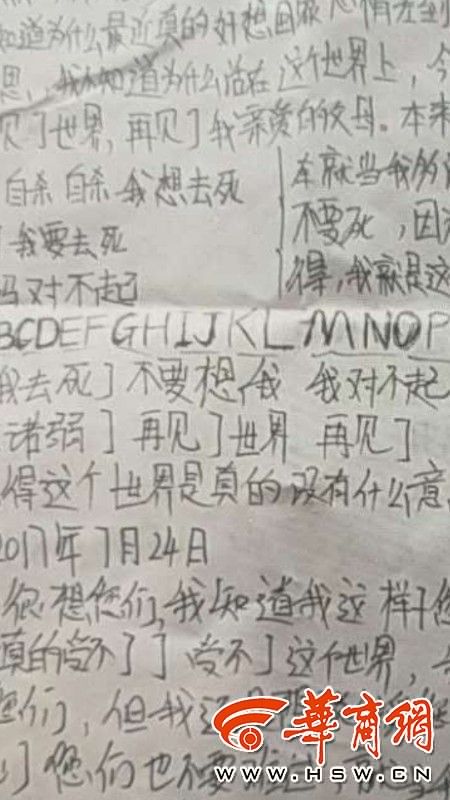 知道为什么最近真的好想回家心情差到
思，我不知道为什么活在这个世界上，今
见了世界，再见了我亲爱的父母。本来
自杀 自杀 我想去死
我要去死
妈对不起
本就当我
不要死，因
得，我就是这
BCDEFGHIJKLMNOP
我去死了 不要想我 我对不起
诺弱了 再见了世界 再见了
得这个世界是真的没有什么意
2017年7月24日
很想您们，我知道我这样子您
真的受不了了 受不了这个世界，
您们，但我还
您们也不要
華商網
WWW.HSW.CN